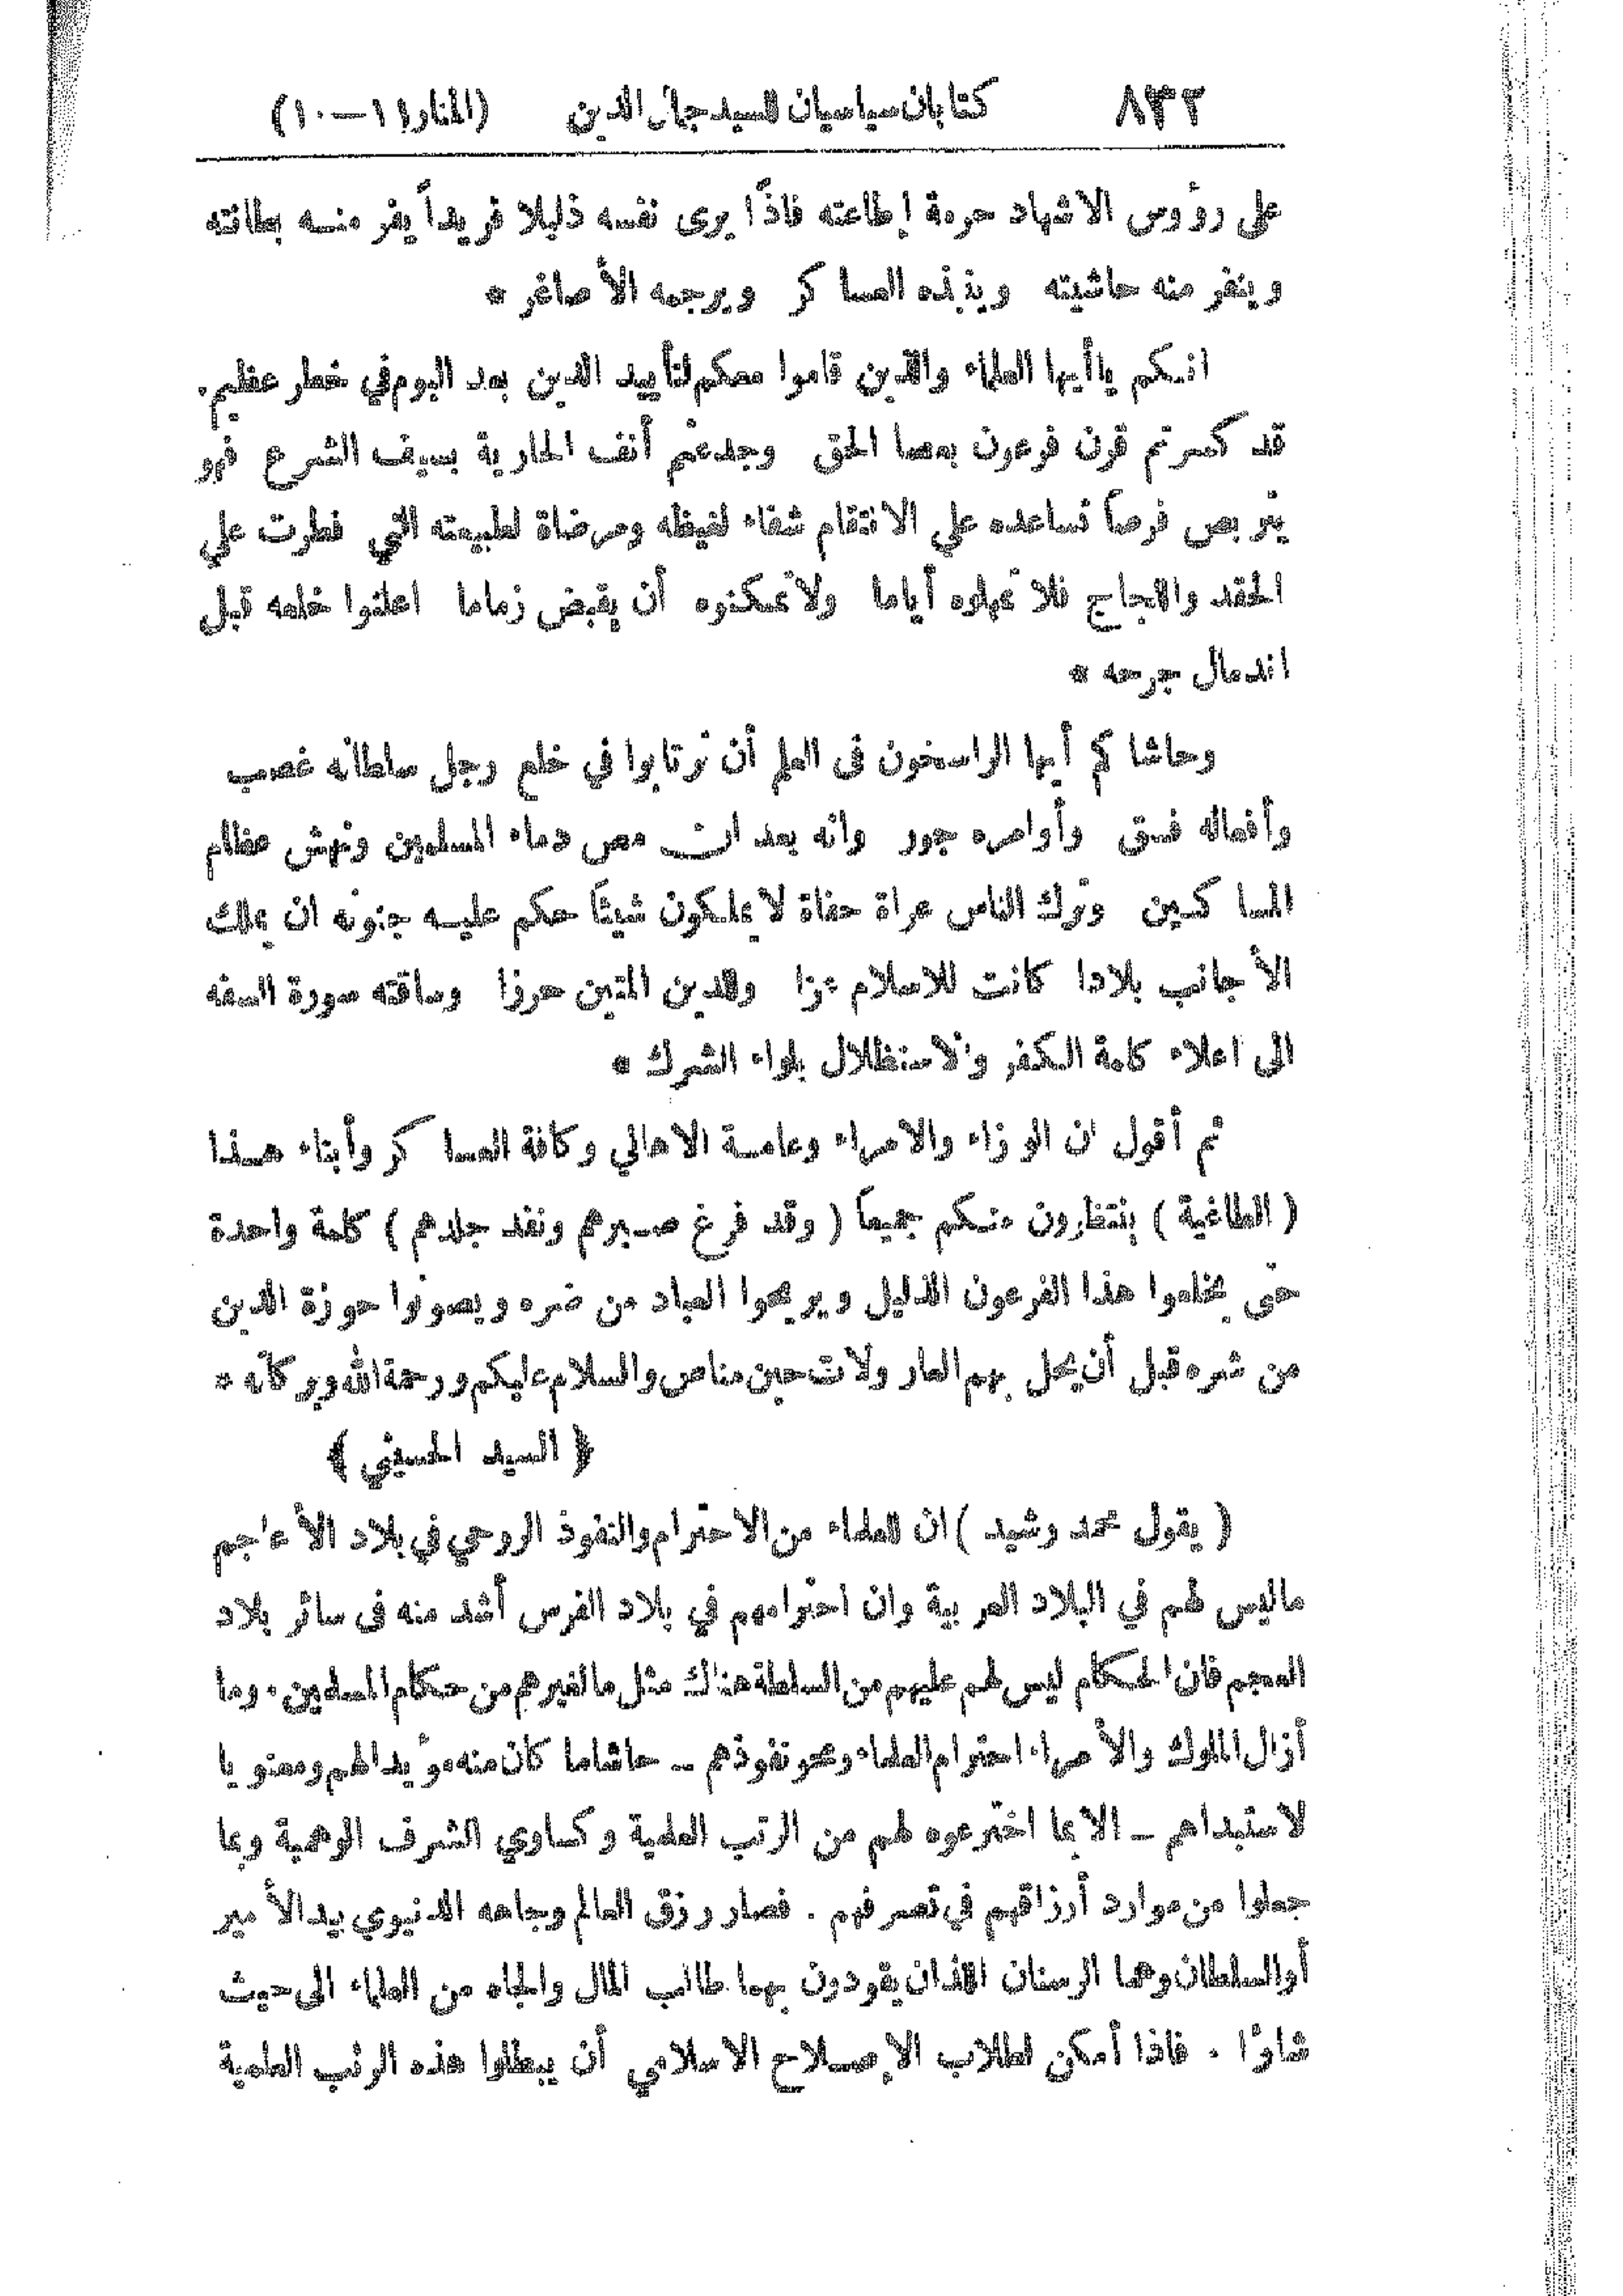 ٨٣٢ كتابان سياسيان للسيد جمال الدين (المنار ١١—١٠)
على رؤوس الاشهاد حرمة إطاعته فاذًا يرى نفسه ذليلا فريداً يفر منه بطانته
وينفر منه حاشيته وينبذه العساكر ويرجمه الأصاغر *
انكم ياأيها العلماء والذين قاموا معكم لتأييد الدين بعد اليوم في خطر عظيم.
قد كسرتم قرن فرعون بعصا الحق وجدعتم أنف الخارية بسيف الشرع فهو
يتربص فرصاً تساعده على الانتقام شفاء لغيظه ومرضاة لطبيعته التي فطرت على
الحقد واللجاج فلا تمهلوه أياما ولا تمكنوه أن يقبض زماما اعلنوا خلعه قبل
اندمال جرحه *
وحاشاكم أيها الراسخون فى العلم أن ترتابوا في خلع رجل سلطانه غصب
وأفعاله فسق وأوامره جور وانه بعد ان مص دماء المسلمين ونهش عظام
المساكين وترك الناس عراة حفاة لا يملكون شيئًا حكم عليه جنونه ان يملك
الأجانب بلادا كانت للاسلام عزا وللدين المتين حرزا وساقته سورة السفه
الى اعلاء كلمة الكفر والاستظلال بلواء الشرك *
ثم أقول ان الوزراء والامراء وعامة الاهالي وكافة العساكر وأبناء هذا
(الطاغية) ينتظرون منكم جميعاً (وقد فرغ صبرهم ونفد جلدهم) كلمة واحدة
حتى يخلعوا هذا الفرعون الذليل ويريحوا العباد من ضره ويصونوا حوزة الدين
من شره قبل أن يحل بهم العار ولات حين مناص والسلام عليكم ورحمة الله وبركاته *
﴿ السيد الحسيني ﴾
(يقول محمد رشيد) ان للعلماء من الاحترام والنفوذ الروحي في بلاد الأعاجم
ماليس لهم في البلاد العربية وان احترامهم في بلاد الفرس أشد منه فى سائر بلاد
العجم فان الحكام ليس لهم عليهم من السلطة هناك مثل ما لغيرهم من حكام المسلمين. وما
أزال الملوك والأمراء احترام العلماء ومحو نفوذهم – حاشا ما كان منه مؤيدا لهم ومعنويا
لاستبدادهم – الا بما اخترعوه لهم من الرتب العلمية وكساوي الشرف الوهمية وبما
جعلوا من موارد أرزاقهم في تصرفهم. فصار رزق العالم وجاهه الدنيوي بيد الأمير
أو السلطان وهما الرسنان اللذان يقودون بهما طالب المال والجاه من العلماء الى حيث
شاؤا. فاذا أمكن لطلاب الإصلاح الاسلامي أن يبطلوا هذه الرتب العلمية